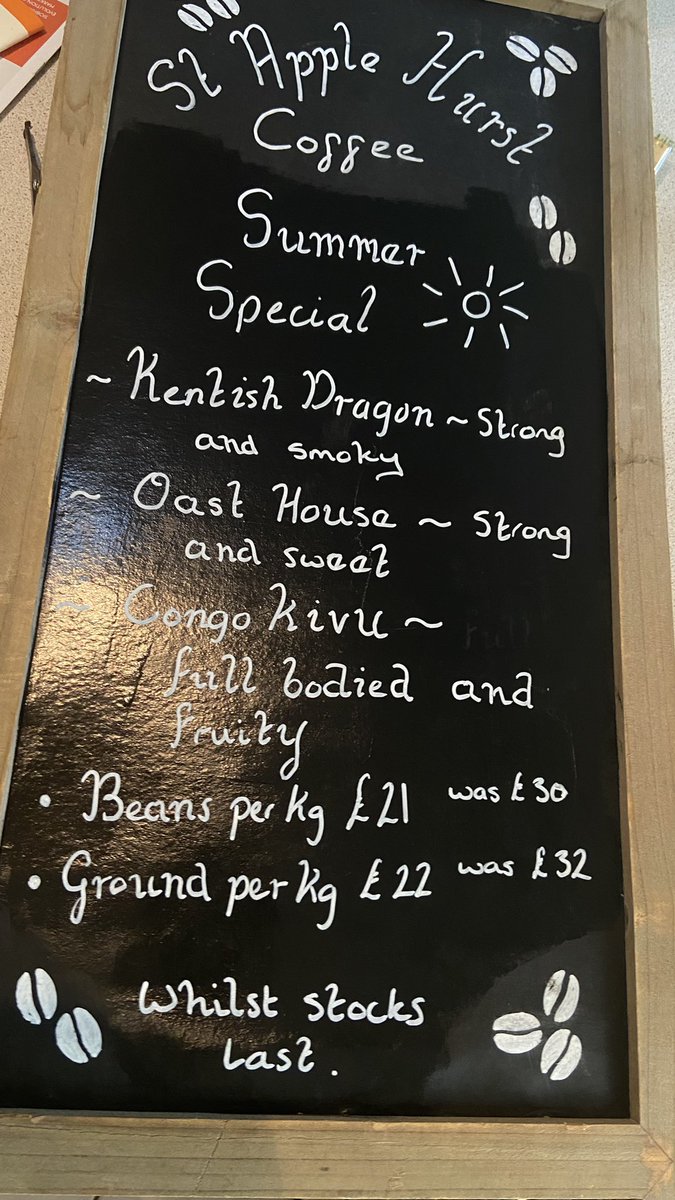 St Apple Hurst
Coffee
Summer
Special
~ Kentish Dragon ~ Strong
and smoky
~ Oast House ~ Strong
and sweet
~ Congo Kivu ~
full bodied and
fruity
• Beans per kg £21 was £30
• Ground per kg £22 was £32
Whilst stocks
Last.